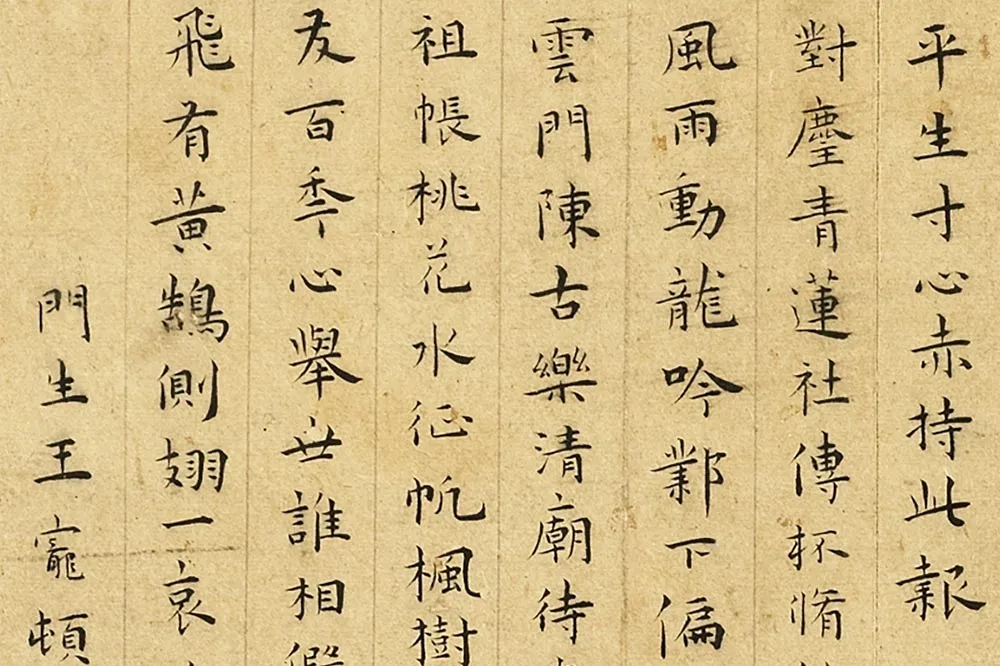 平生寸心赤持此報
對麈青蓮社傳杯脩
風雨動龍吟鄴下偏
雲門陳古樂清廟待
祖帳桃花水征帆楓樹
友百秊心舉世誰相
飛有黃鵠側翅一哀
門生王寵頓